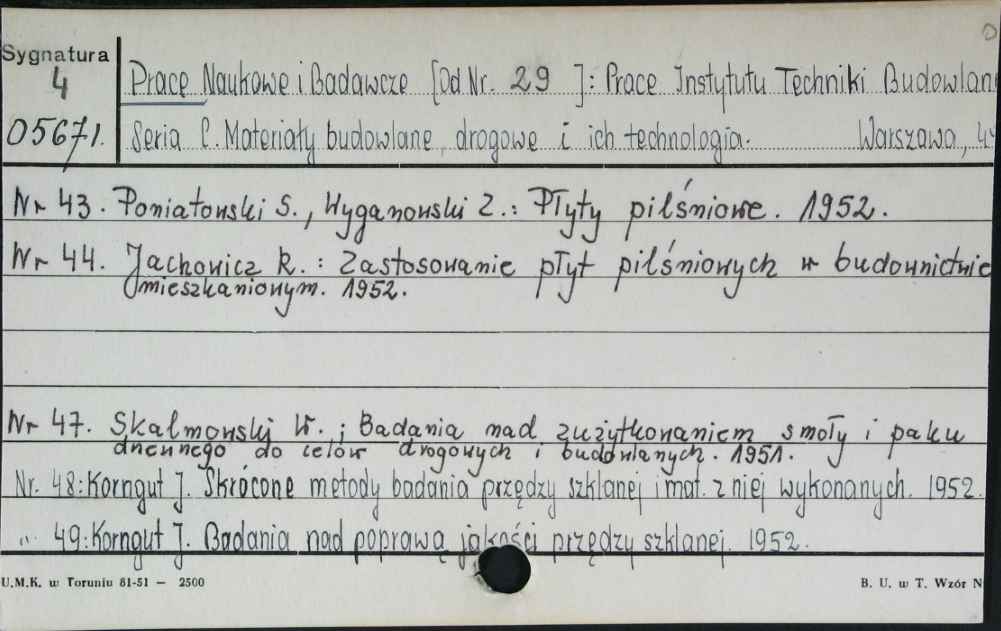 Sygnatura
4
05671.
Prace Naukowe i Badawcze [Od Nr. 29 ]: Prace Instytutu Techniki Budowlan
Seria C. Materiały budowlane, drogowe i ich technologia. Warszawa, 49
Nr 43. Poniatowski S., Wyganowski Z.: Płyty pilśniowe. 1952.
Nr 44. Jachowicz R.: Zastosowanie płyt pilśniowych w budownictwie
mieszkaniowym. 1952.
Nr 47. Skalmowski W.; Badania nad zużytkowaniem smoły i paku
drzewnego do celów drogowych i budowlanych. 1951.
Nr. 48: Korngut J. Skrócone metody badania przędzy szklanej i mat. z niej wykonanych. 1952.
" 49: Korngut J. Badania nad poprawą jakości przędzy szklanej. 1952.
U.M.K. w Toruniu 81-51 — 2500
B. U. w T. Wzór N